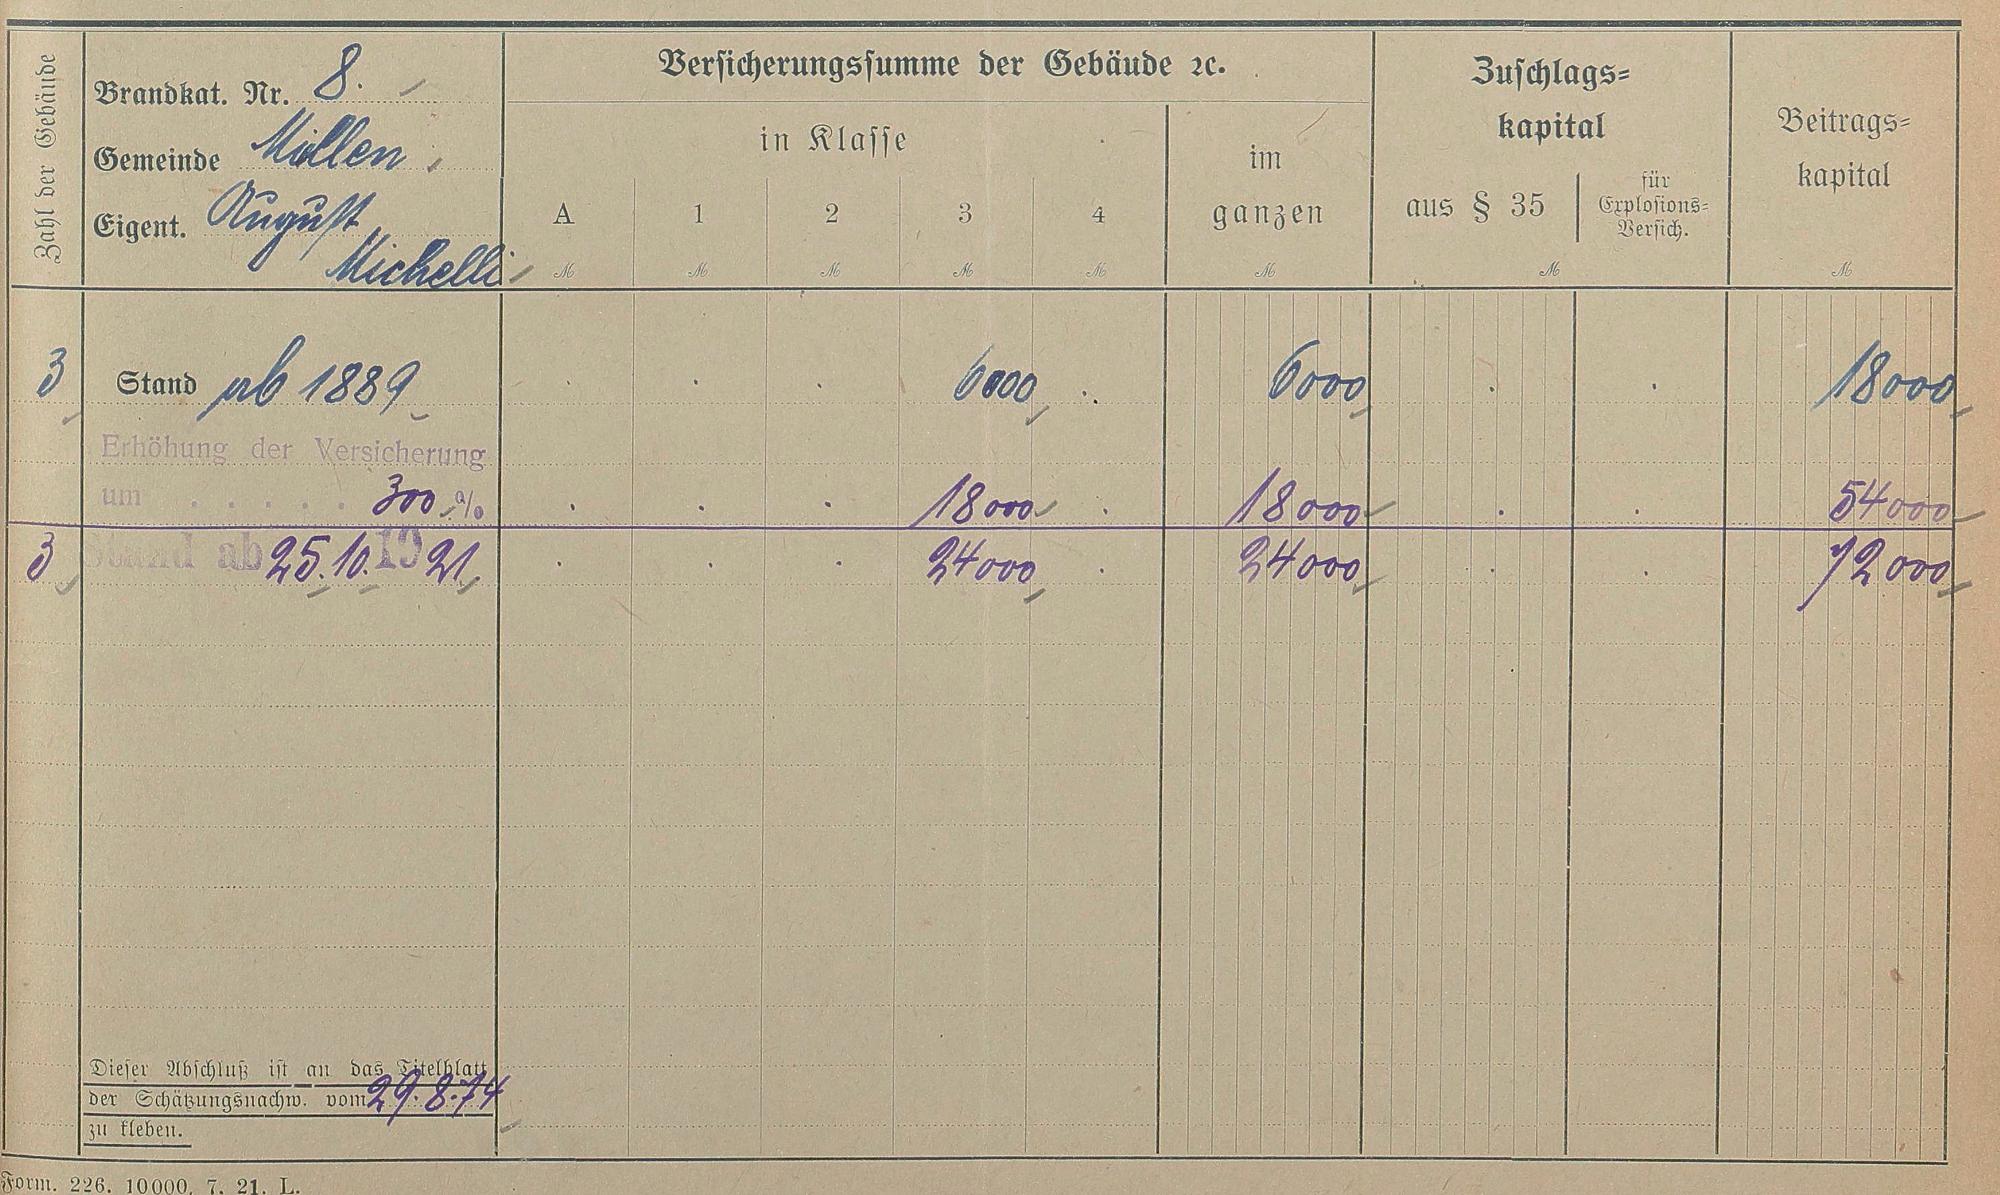 Zahl der Gebäude
Brandkat. Nr. 8.
Gemeinde Möllen
Eigent. August
Michelli
Versicherungssumme der Gebäude ꝛc.
in Klasse
im
ganzen
A 1 2 3 4
ℳ ℳ ℳ ℳ ℳ ℳ
Zuschlags=
kapital
aus § 35
für
Explosions=
Versich.
ℳ
Beitrags=
kapital
ℳ
3 Stand ab 1889 . . . 6000 . 6000 . . 18000
Erhöhung der Versicherung
um . . . . . 300 % . . . 18000 . 18000 . . 54000
3 Stand ab 25.10.1921 . . . 24000 . 24000 . . 72000
Dieser Abschluß ist an das Titelblatt
der Schätzungsnachw. vom 29.8.74
zu kleben.
Form. 226. 10000. 7. 21. L.